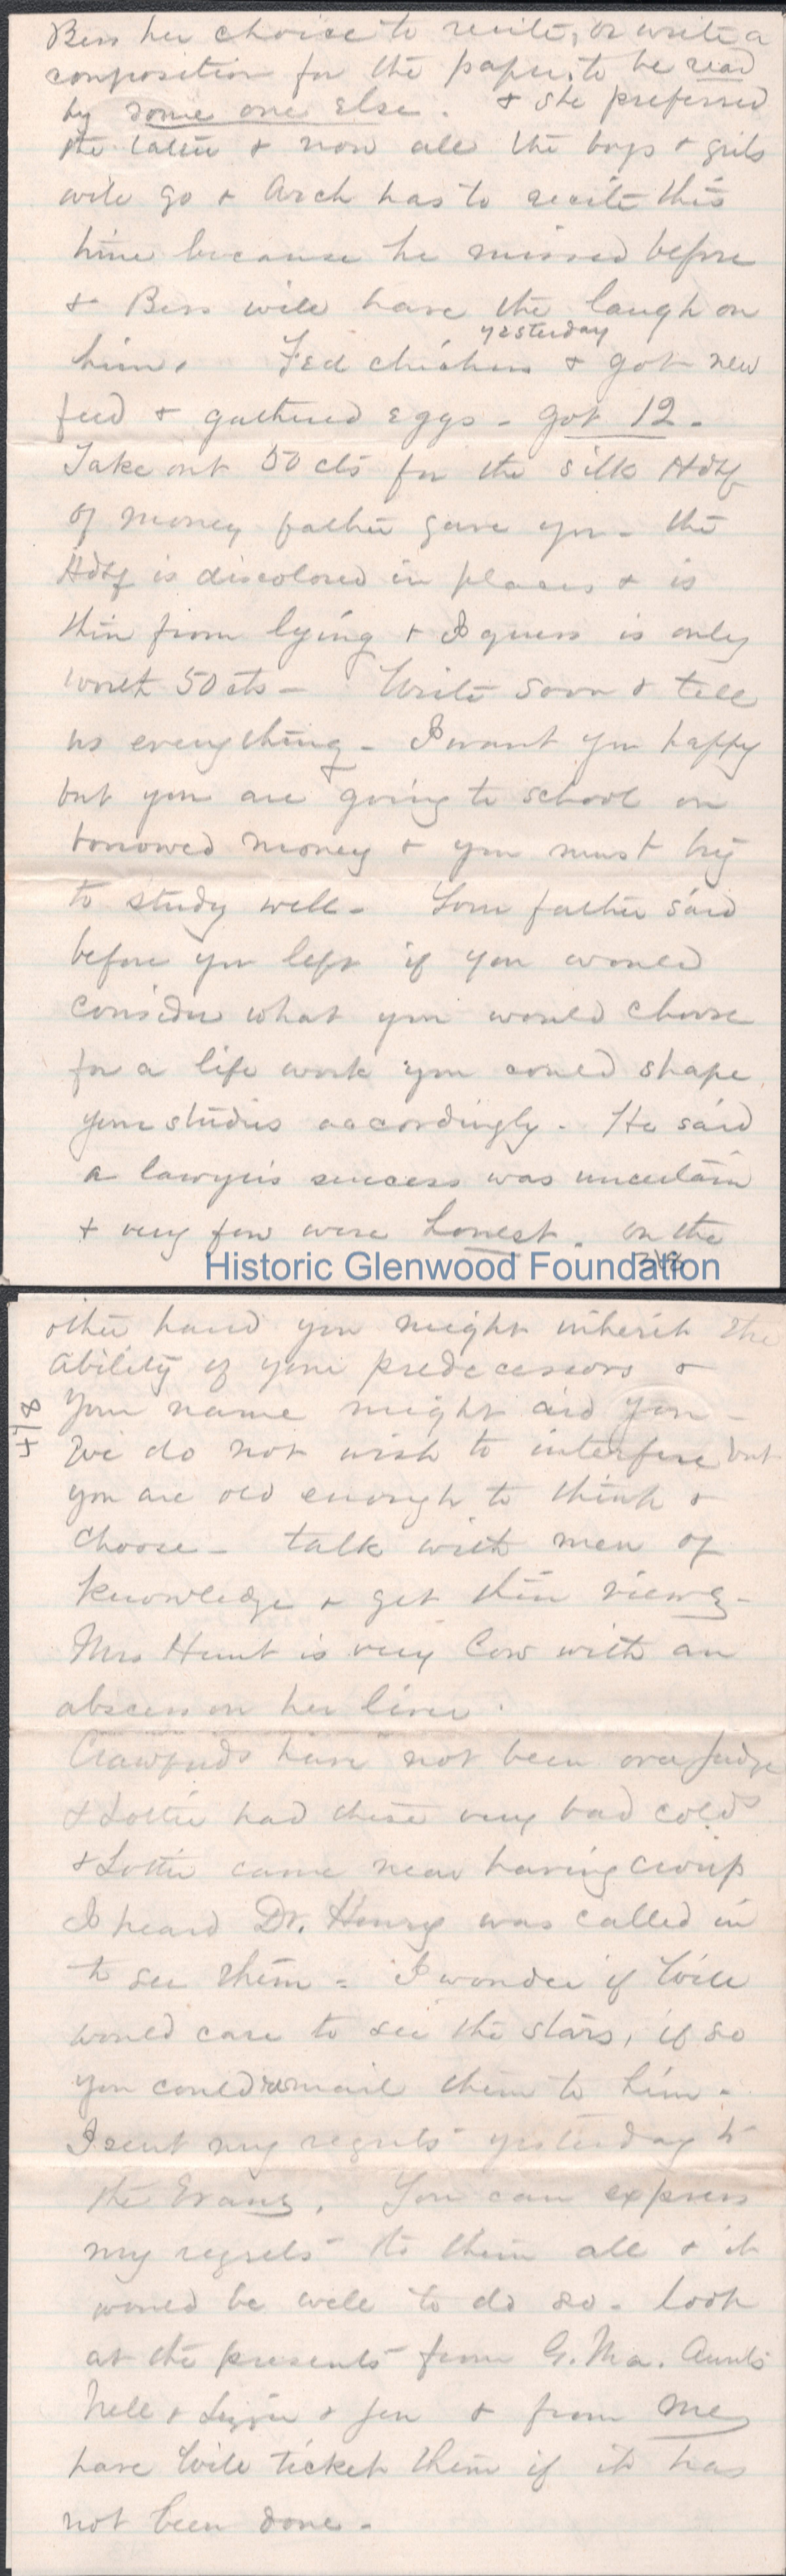 Bess her choice to recite, or write a
composition for the paper, to be read
by some one else. & she preferred
the latter & now all the boys & girls
will go & Arch has to recite this
time because he missed before
& Bess will have the laugh on
yesterday
him. Fed chickens & got new
feed & gathered eggs - got 12 -
Take out 50 cts for the silk Hdkf
of money father gave you - the
Hdkf is discolored in places & is
thin from lying & I guess is only
worth 50 cts - Write soon & tell
us everything - I want you happy
but you are going to school on
borrowed money & you must try
to study well - Your father said
before you left if you would
consider what you would choose
for a life work you could shape
your studies accordingly. He said
a lawyer's success was uncertain
& very few were honest. On the
Historic Glenwood Foundation
other hand you might inherit the
ability of your predecessors &
4/8
Your name might aid you -
We do not wish to interfere but
you are old enough to think &
choose - talk with men of
knowledge & get their views -
Mrs Hunt is very low with an
abscess on her liver.
Crawfords have not been over Judge
& Lottie had these very bad colds
& Lottie came near having croup
I heard Dr. Henry was called in
to see them - I wonder if Will
would care to see the stars, if so
you could remail them to him -
I sent my regrets yesterday to
the Evans. You can express
my regrets to them all & it
would be well to do so - look
at the presents from G. Ma. Aunts
Nell & Lizzie & Jen & from me
have Will ticket them if it has
not been done -